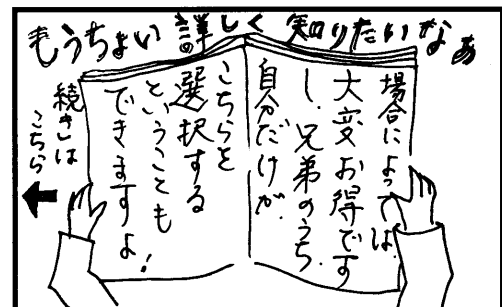 もうちょい詳しく知りたいなぁ
場合によっては、
大変お得です
し、兄弟のうち、
自分だけが、
こちらを
選択する
ということも
できますよ！
続きは
こちら